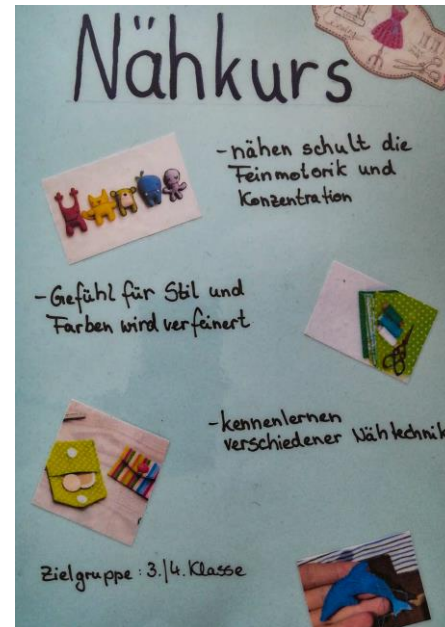 Nähkurs
- nähen schult die
Feinmotorik und
Konzentration
- Gefühl für Stil und
Farben wird verfeinert
- kennenlernen
verschiedener Nähtechnik
Zielgruppe: 3./4. Klasse